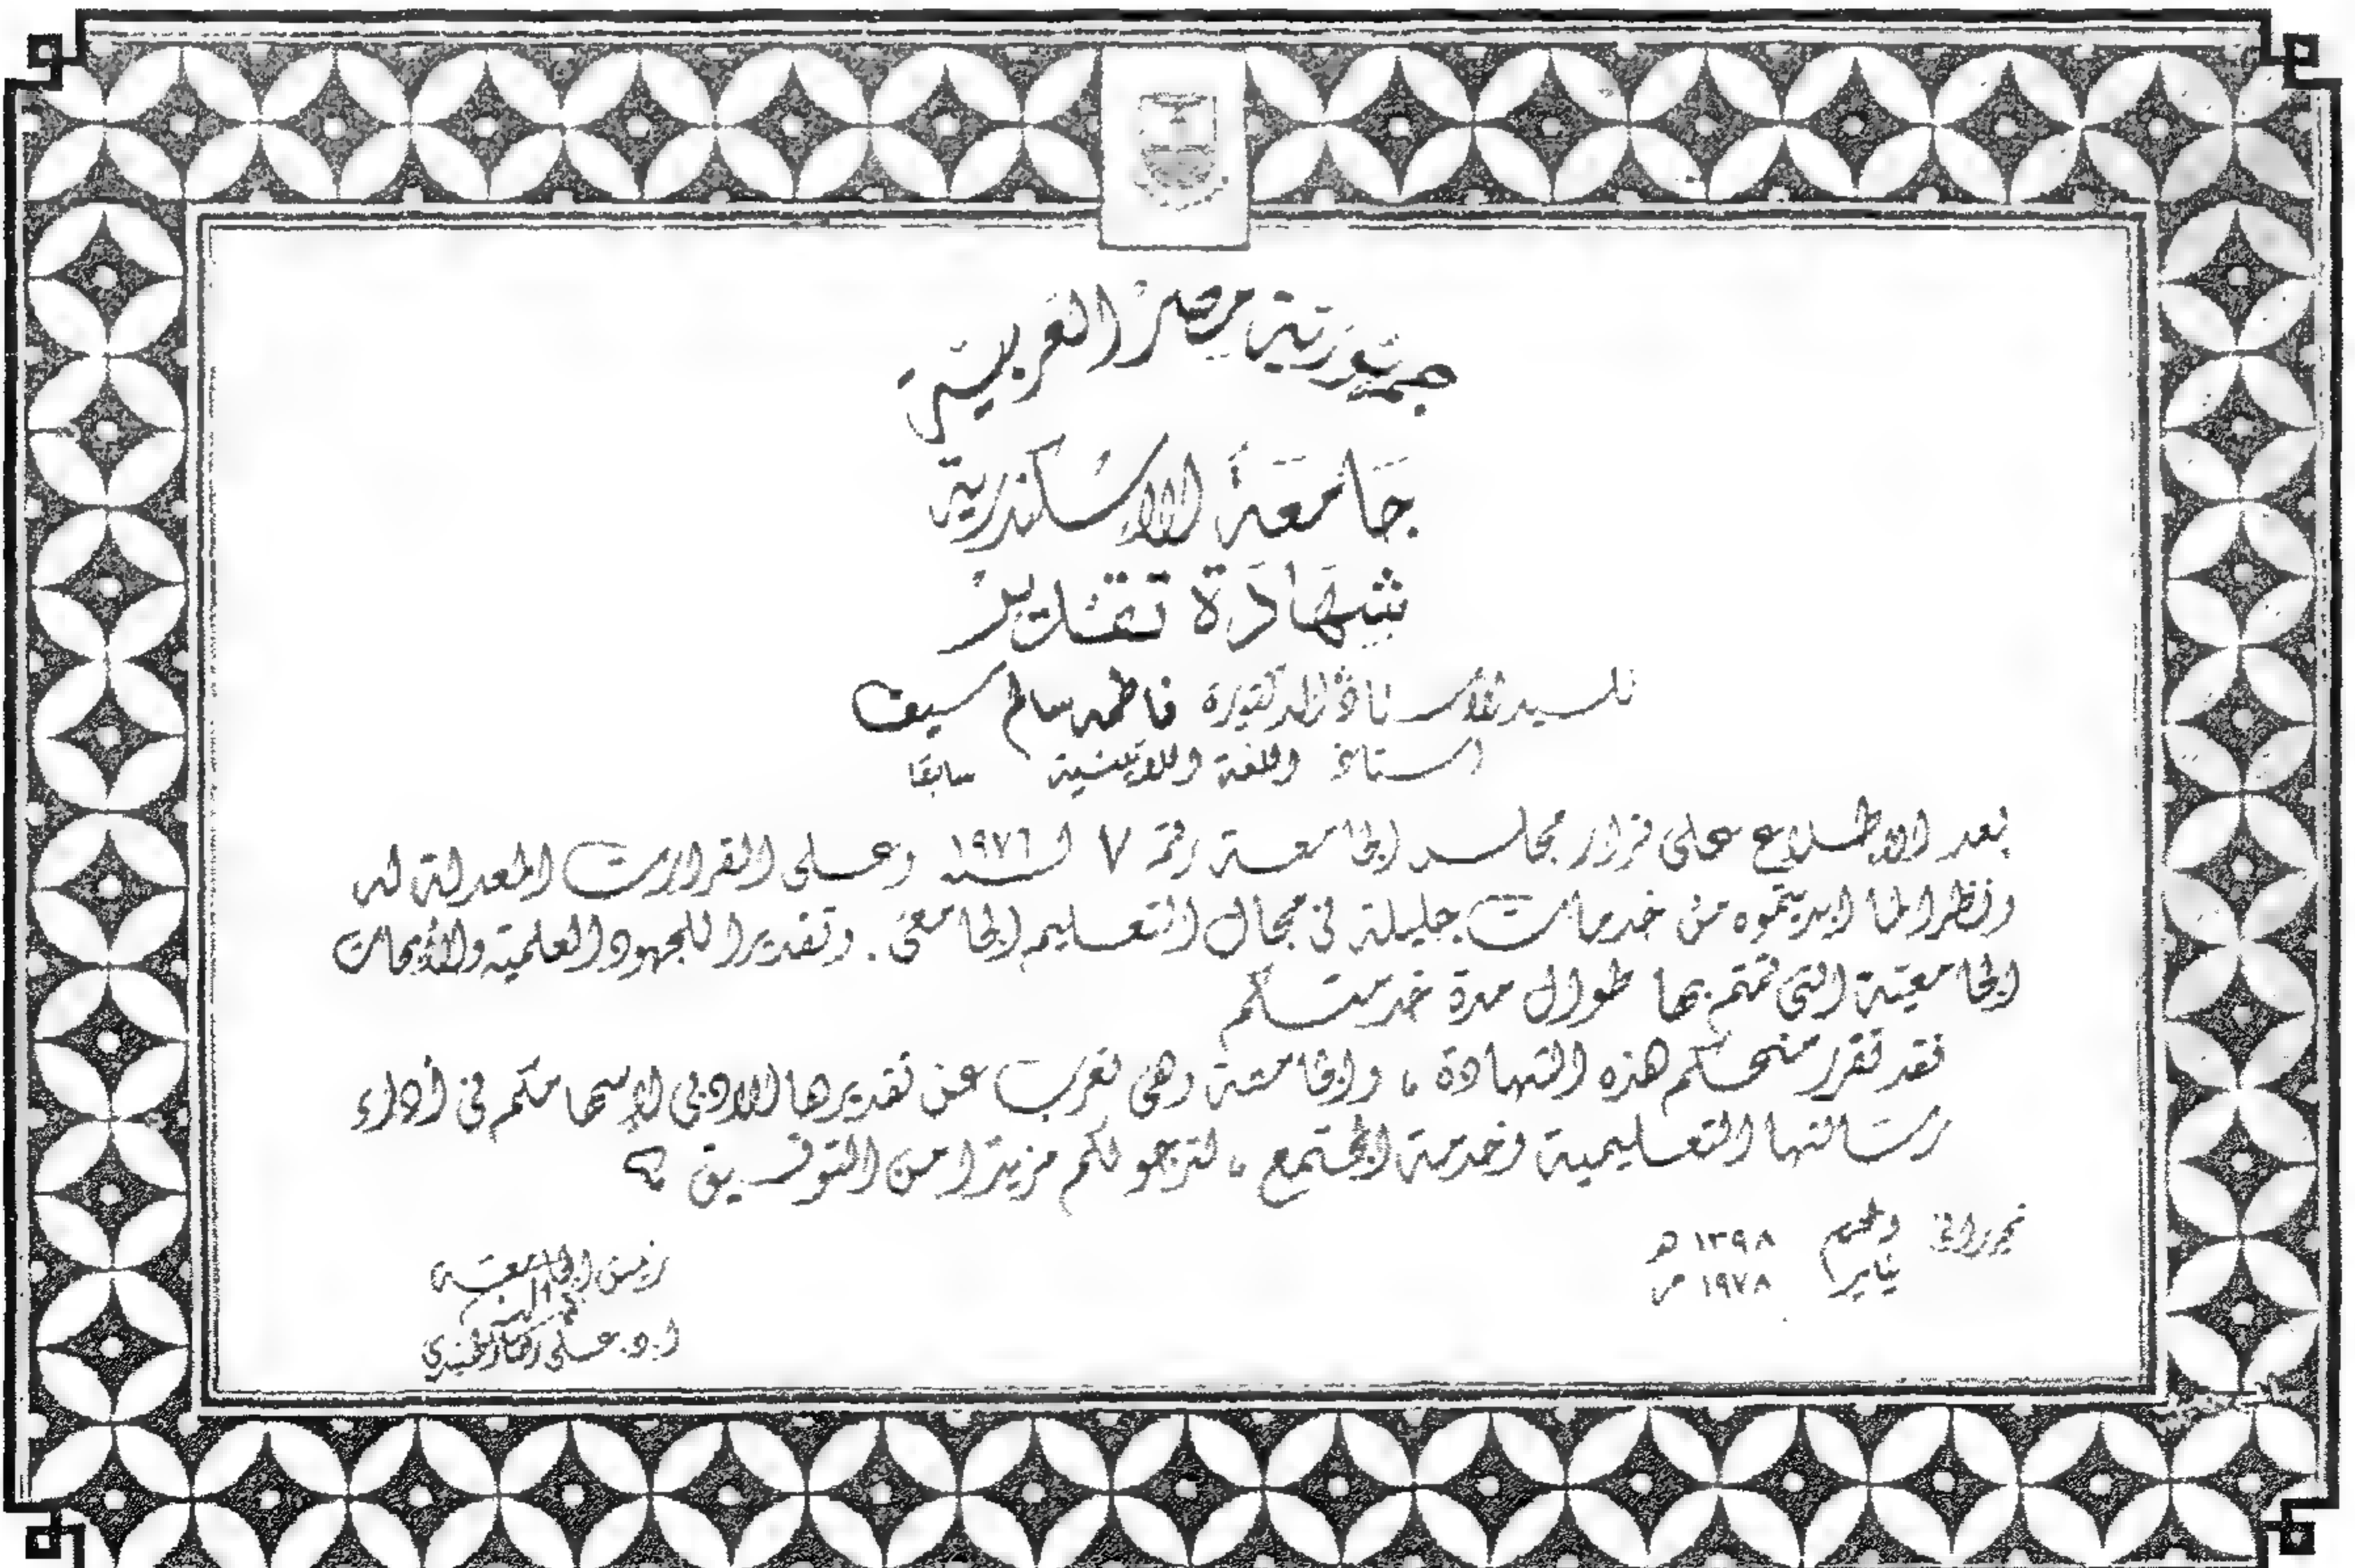 جمهورية مصر العربية
جامعة الإسكندرية
شهادة تقدير
للسيد الأستاذ الدكتورة فاطمة سالم سيف
أستاذ اللغة اللاتينية سابقا
بعد الاطلاع على قرار مجلس الجامعة رقم ٧ لسنة ١٩٧٦ وعلى القرارات المعدلة له
ونظرا لما أبديتموه من خدمات جليلة في مجال التعليم الجامعي . وتقديرا للجهود العلمية والأبحاث
الجامعية التي قمتم بها طوال مدة خدمتكم
فقد تقرر منحكم هذه الشهادة ، والجامعة وهي تعرب عن تقديرها الأدبي لإسهامكم في أداء
رسالتها التعليمية وخدمة المجتمع ، لترجو لكم مزيدا من التوفيق
تحريرا في محرم ١٣٩٨ هـ
يناير ١٩٧٨ م
رئيس الجامعة
أ.د. علي